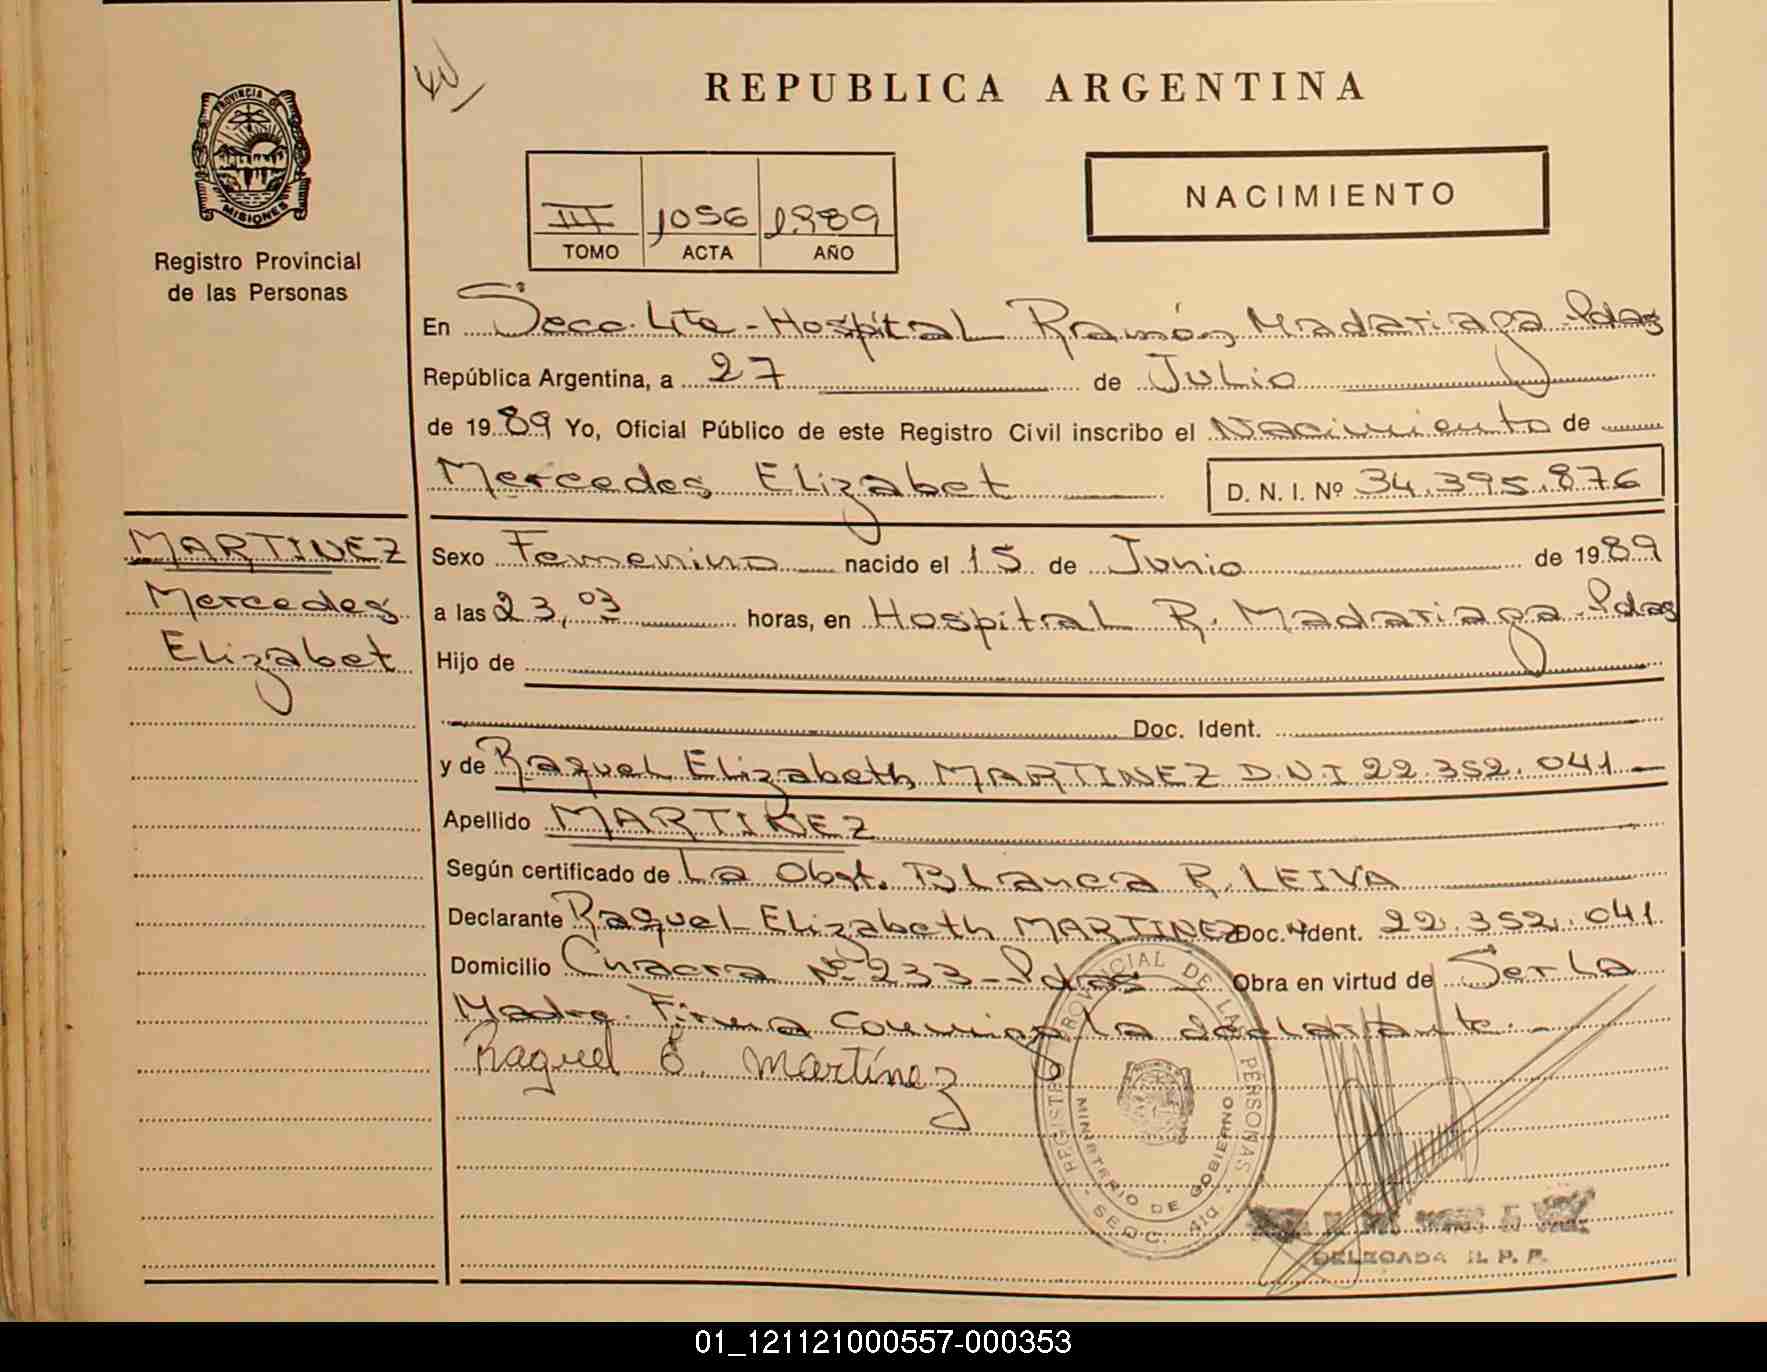 REPUBLICA ARGENTINA
PROVINCIA DE
MISIONES
Registro Provincial
de las Personas
III 1056 1989
TOMO ACTA AÑO
NACIMIENTO
En Secc. 4ta - Hospital Ramón Madariaga - Pdas
República Argentina, a 27 de Julio
de 1989 Yo, Oficial Público de este Registro Civil inscribo el Nacimiento de
Mercedes Elizabet D. N. I. Nº 34.395.876
MARTINEZ
Mercedes
Elizabet
Sexo Femenino nacido el 15 de Junio de 1989
a las 23,03 horas, en Hospital R. Madariaga - Pdas
Hijo de
Doc. Ident.
y de Raquel Elizabeth MARTINEZ D.N.I 22.352.041
Apellido MARTINEZ
Según certificado de La Obst. Blanca R. LEIVA
Declarante Raquel Elizabeth MARTINEZ Doc. Ident. 22.352.041
Domicilio Chacra Nº 233 - Pdas Obra en virtud de Ser La
Madre. Firma Conmigo La declarante. -
Raquel E. Martínez
REGISTRO PROVINCIAL DE LAS PERSONAS
MINISTERIO DE GOBIERNO
SECC. 4ta
DELEGADA R. P. P.
01_121121000557-000353